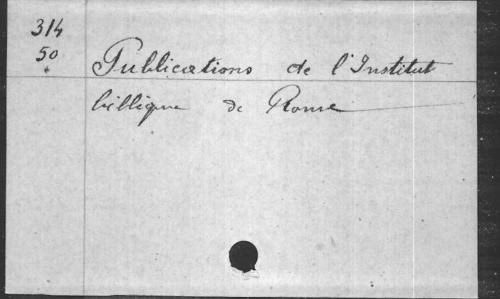 314
50
Publications de l'Institut
biblique de Rome